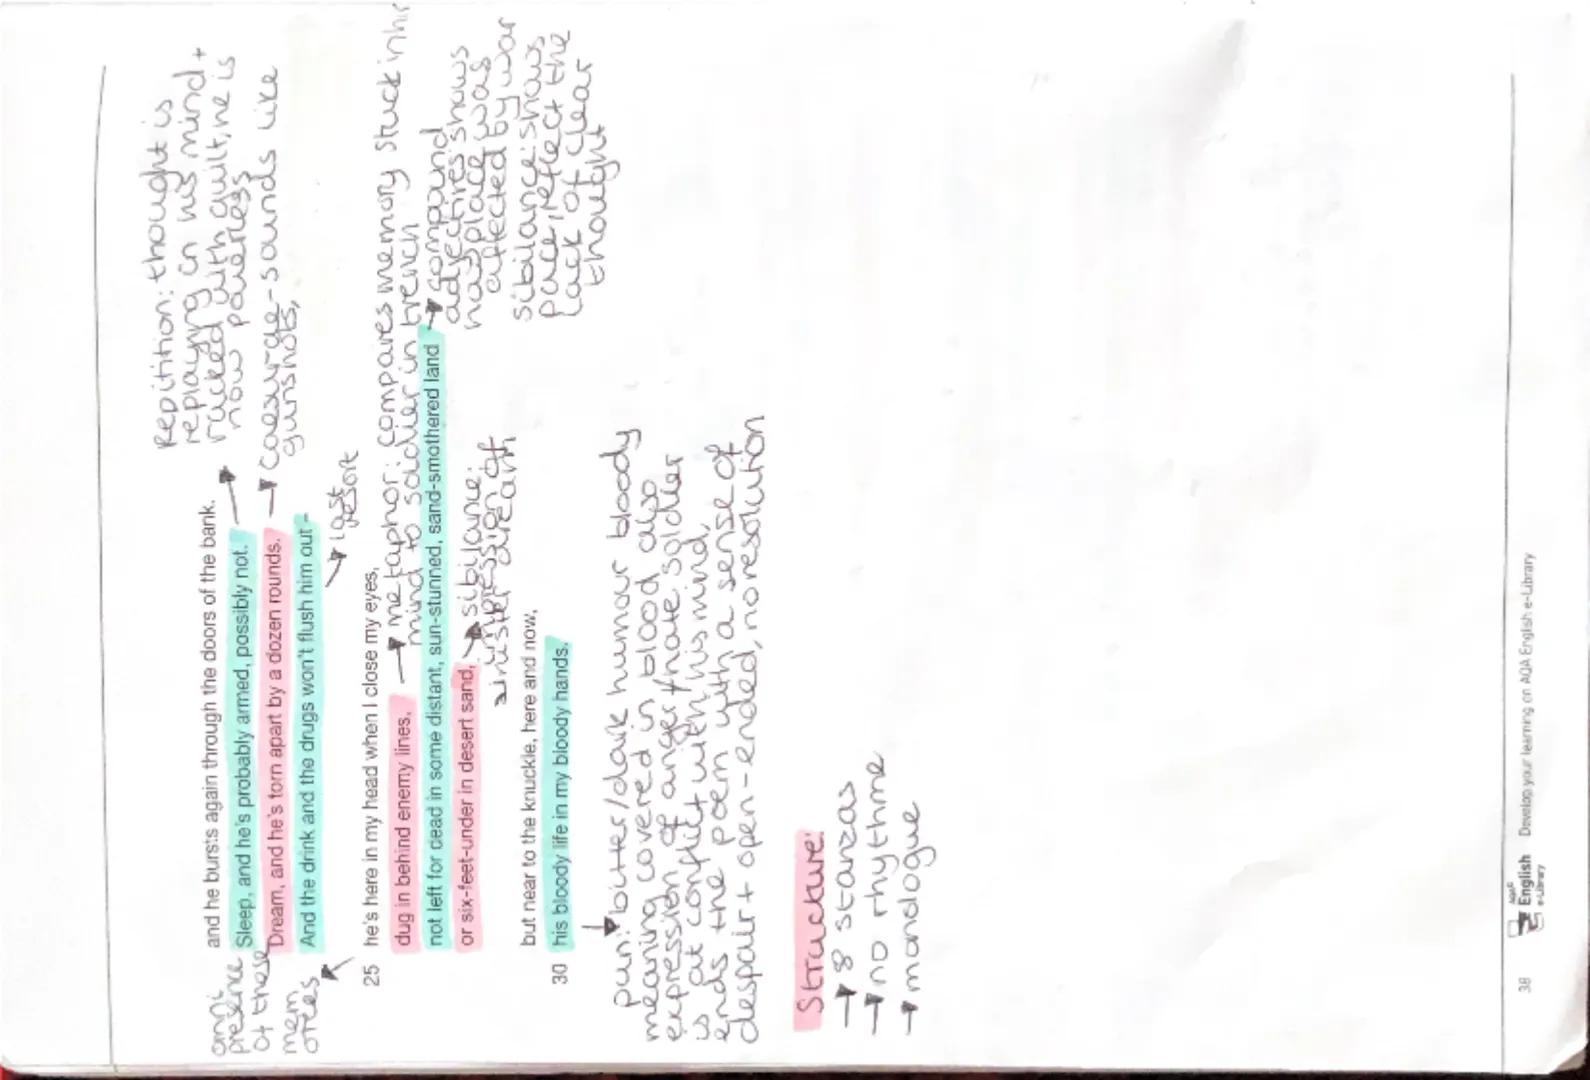 Repitition: thought is
replaying in his mind +
racked with guilt, he is
now powerless
and he bursts again through the doors of the bank.
Sleep, and he's probably armed, possibly not.
Dream, and he's torn apart by a dozen rounds.
And the drink and the drugs won't flush him out –
caesurae - sounds like
gunshots,
last
resort
omni
presence
of these
mem
ories
25 he's here in my head when I close my eyes,
dug in behind enemy lines,
not left for dead in some distant, sun-stunned, sand-smothered land
or six-feet-under in desert sand,
metaphor: compares memory stuck in hir
mind to soldier in trench
compound
adjectives: shows
how place was
affected by war
sibilance: shows
pace, reflect the
lack of clear
thought
sibilance:
sinister
impression of
death
but near to the knuckle, here and now,
30 his bloody life in my bloody hands.
pun: bitter/dark humour bloody
meaning covered in blood also
expression of anger/hate. Soldier
is at conflict with his mind,
ends the poem with a sense of
despair + open-ended, no resolution
Structure:
→ 8 stanzas
→ no rhythme
→ monologue
38 AQA English e-Library Develop your learning on AQA English e-Library